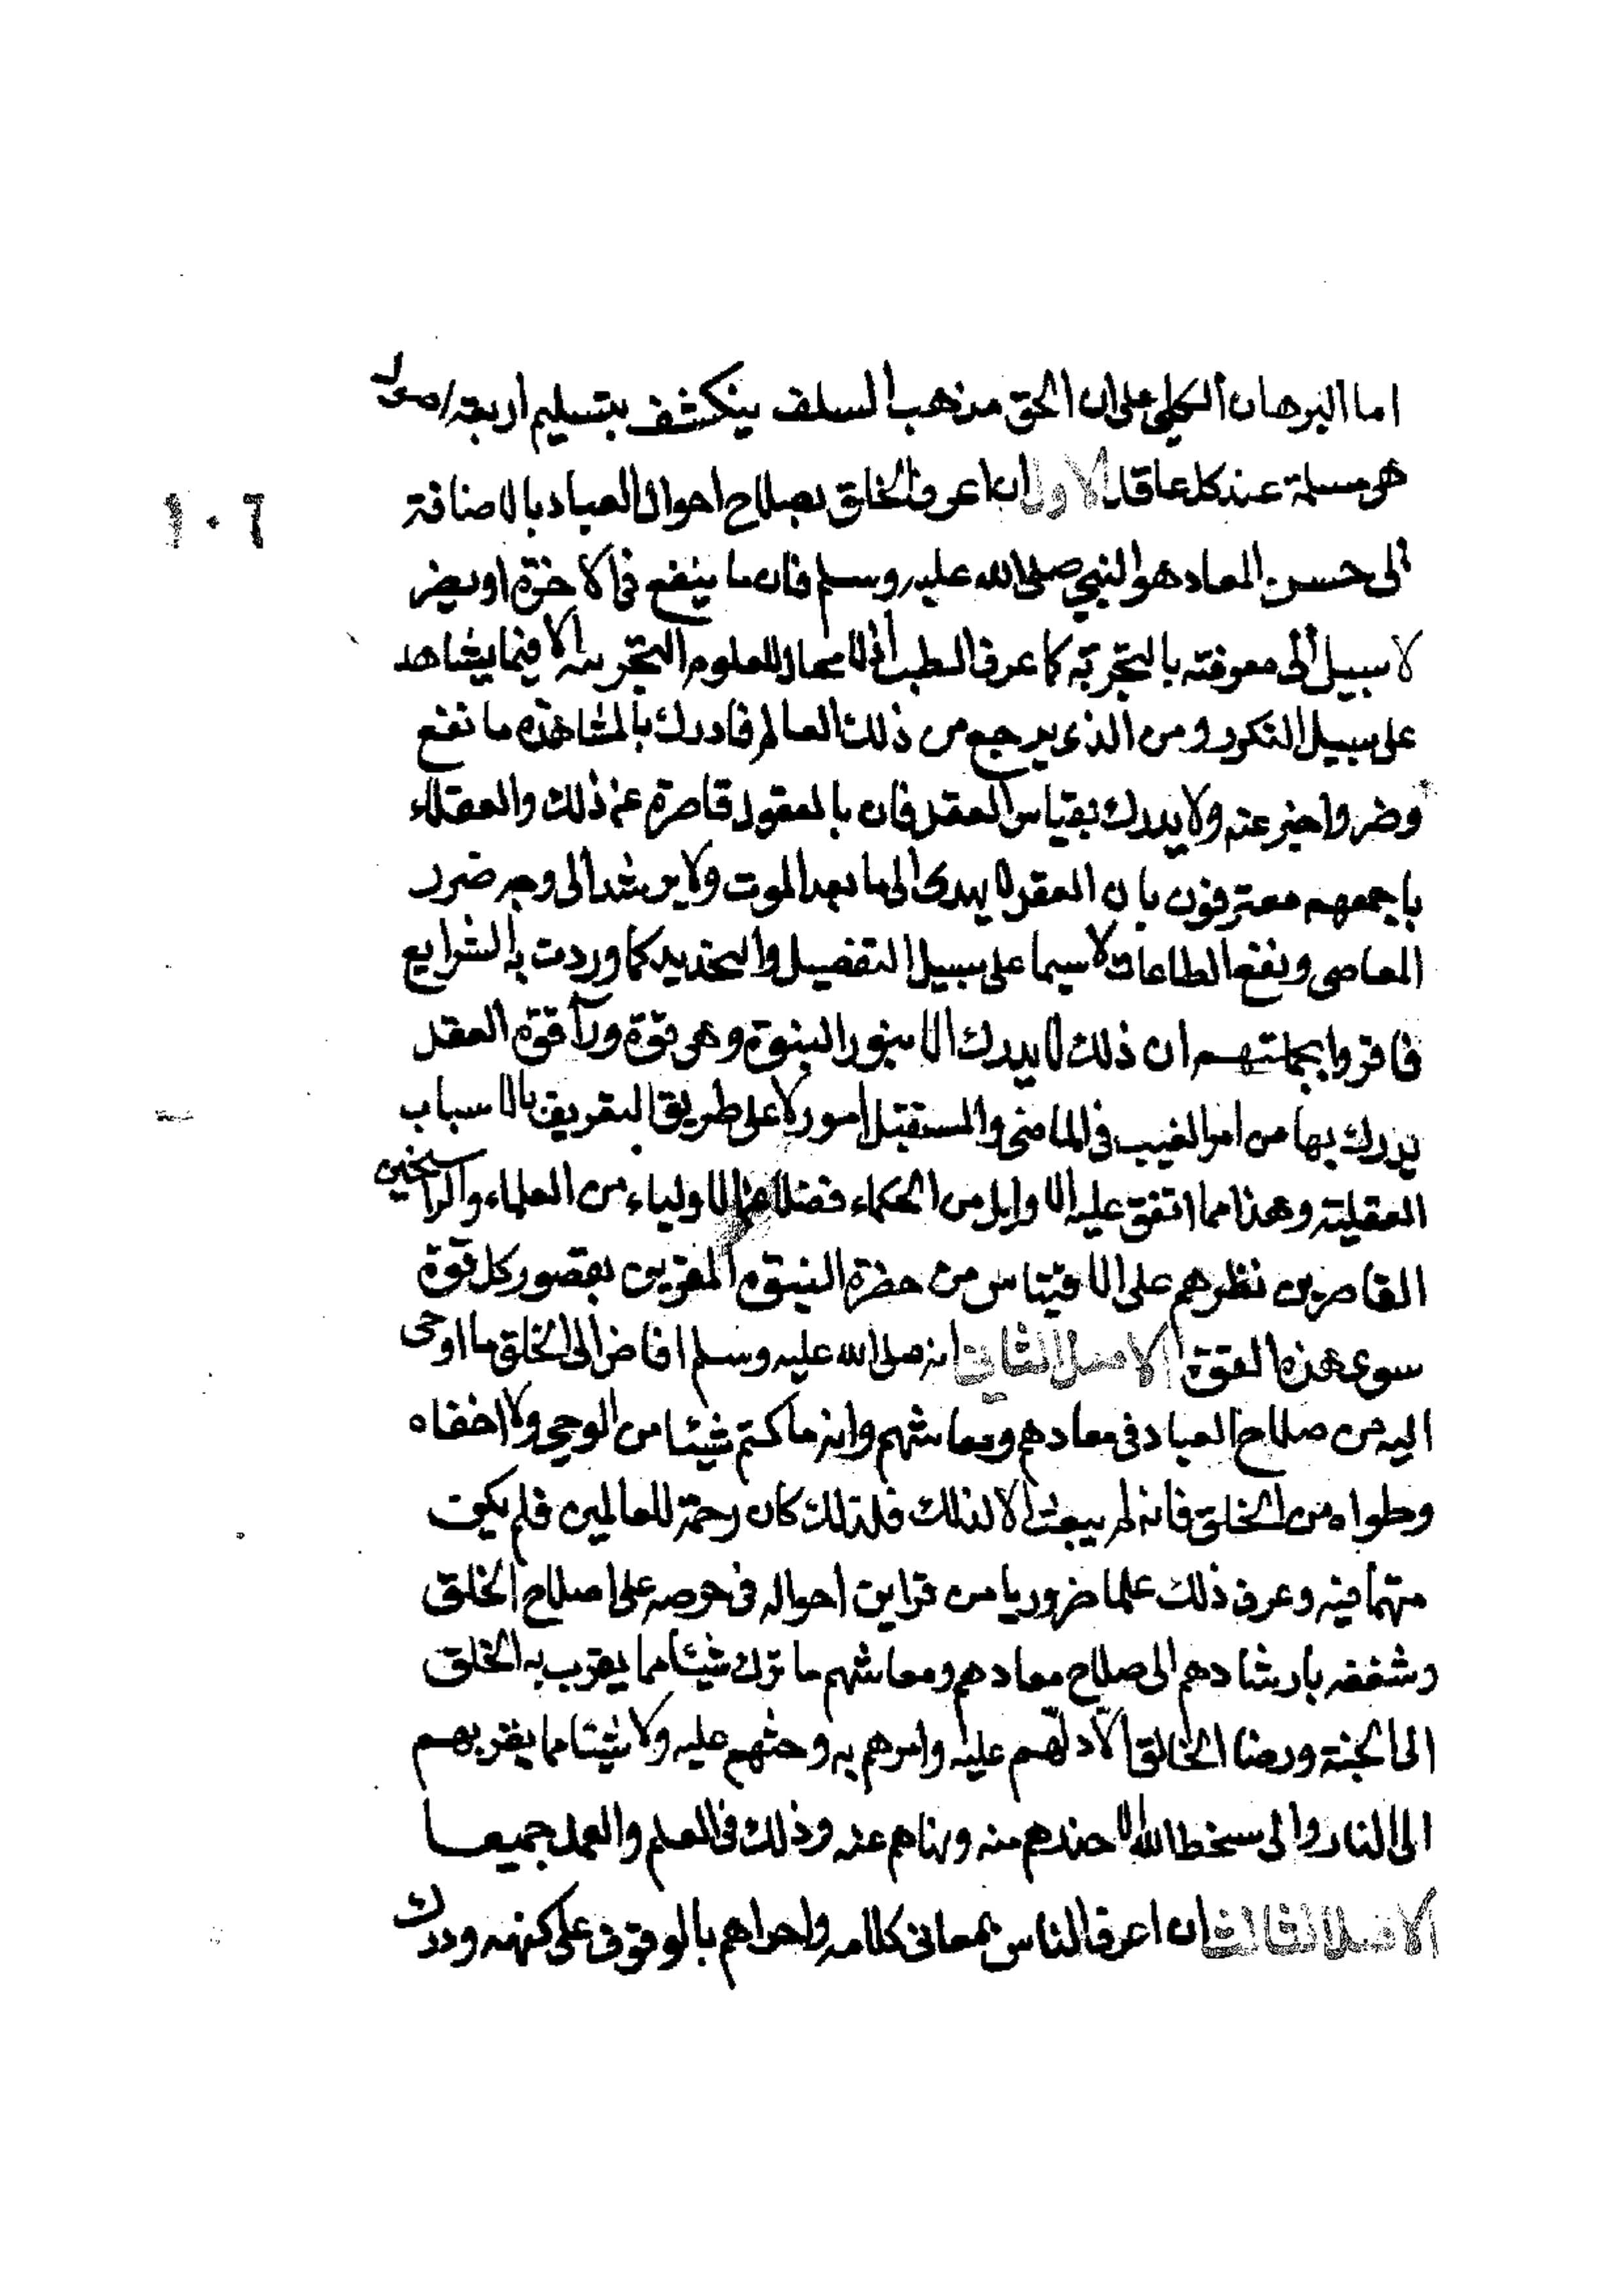 اما البرهان الكلي على ان الحق مذهب السلف ينكشف بتسليم اربعة اصول
هي مسلمة عند كل عاقل الاول ان اعرف الخلق بصلاح احوال العباد بالاضافة
١٠٦
الى حسن المعاد هو النبي صلى الله عليه وسلم فان ما ينفع في الاخرة او يضر
لا سبيل الى معرفته بالتجربة كما عرف الطب اذ لا مجال للعلوم التجربيه الا فيما يشاهد
على سبيل التكرر ومن الذي يرجع من ذلك العالم فادرك بالمشاهدة ما نفع
وضر واخبر عنه ولا يدرك بقياس العقل فان بالعقول قاصرة عن ذلك والعقلاء
باجمعهم معترفون بان العقل لا يهدى الى ما بعد الموت ولا يرشد الى وجه ضرر
المعاصى ونفع الطاعات لا سيما على سبيل التفصيل والتحديد كما وردت به الشرايع
فاقروا بجملتهم ان ذلك لا يدرك الا بنور النبوة وهى قوة ورآ قوة العقل
يدرك بها من امر الغيب في الماضى والمستقبل امور لا على طريق التعريف بالاسباب
العقلية وهذا مما اتفق عليه الاوايل من الحكماء فضلا عن الاولياء من العلماء والراسخين
القاصرين نظرهم على الاقتباس من حضرة النبوة المقرين بقصور كل قوة
سوى هذه القوة الاصل الثاني انه صلى الله عليه وسلم افاض الى الخلق ما اوحى
اليه من صلاح العباد فى معادهم ومعاشهم وانه ما كتم شيئا من الوحي ولا اخفاه
وطواه من الخلق فانه لم يبعث الا لذلك فلذلك كان رحمة للعالمين فلم يكن
متهما فيه وعرف ذلك علما ضروريا من قراين احواله فى حرصه على اصلاح الخلق
وشغفه بارشادهم الى صلاح معادهم ومعاشهم ما ترك شيئا مما يقرب به الخلق
الى الجنة ورضا الخالق الا دلهم عليه وامرهم به وحثهم عليه ولا شيئا مما يقربهم
الى النار والى سخط الله الا حذرهم منه ونهاهم عنه وذلك في العلم والعمل جميعا
الاصل الثالث ان اعرف الناس بمعانى كلامه واحراهم بالوقوف على كنهه ودرك